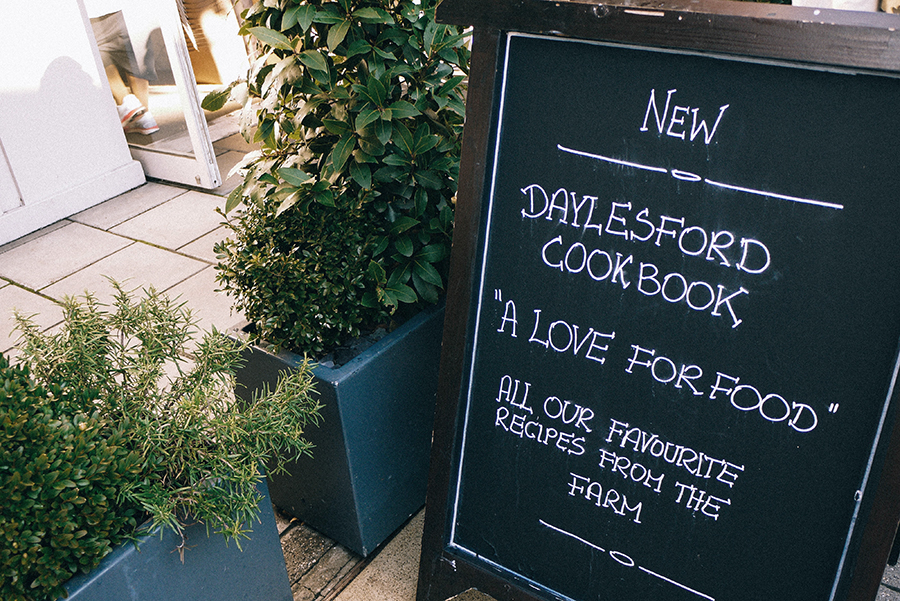 NEW
DAYLESFORD
COOKBOOK
"A LOVE FOR FOOD"
ALL OUR FAVOURITE
RECIPES FROM THE
FARM